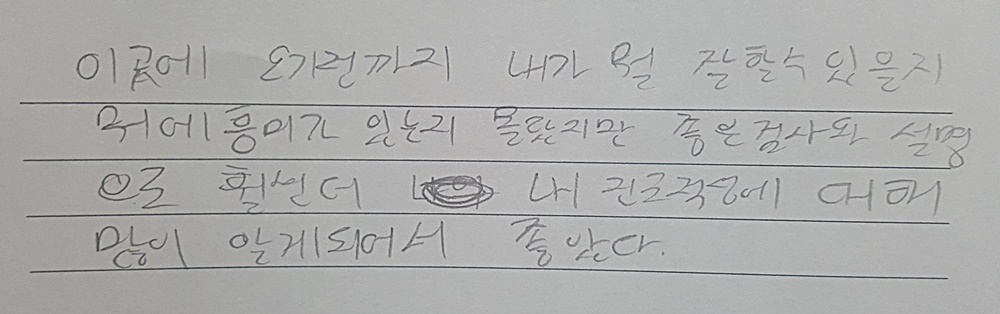 이곳에 오기전까지 내가 뭘 잘할수 있을지
뭐에 흥미가 있는지 몰랐지만 좋은검사와 설명
으로 훨씬더 내 진로적성에 대해
많이 알게되어서 좋았다.